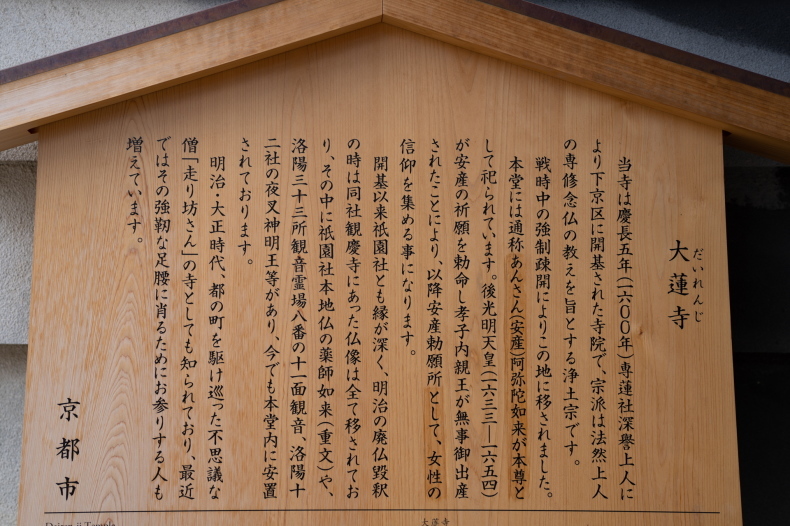 だいれんじ
大蓮寺
当寺は慶長五年(一六〇〇年)専蓮社深誉上人に
より下京区に開基された寺院で、宗派は法然上人
の専修念仏の教えを旨とする浄土宗です。
戦時中の強制疎開によりこの地に移されました。
本堂には通称あんさん(安産)阿弥陀如来が本尊と
して祀られています。後光明天皇(一六三三―一六五四)
が安産の祈願を勅命し孝子内親王が無事御出産
されたことにより、以降安産勅願所として、女性の
信仰を集める事になります。
開基以来祇園社とも縁が深く、明治の廃仏毀釈
の時は同社観慶寺にあった仏像は全て移されてお
り、その中に祇園社本地仏の薬師如来(重文)や、
洛陽三十三所観音霊場八番の十一面観音、洛陽十
二社の夜叉神明王等があり、今でも本堂内に安置
されております。
明治・大正時代、都の町を駆け巡った不思議な
僧「走り坊さん」の寺としても知られており、最近
ではその強靭な足腰に肖るためにお参りする人も
増えています。
京都市
Dairen-ji Temple
大莲寺